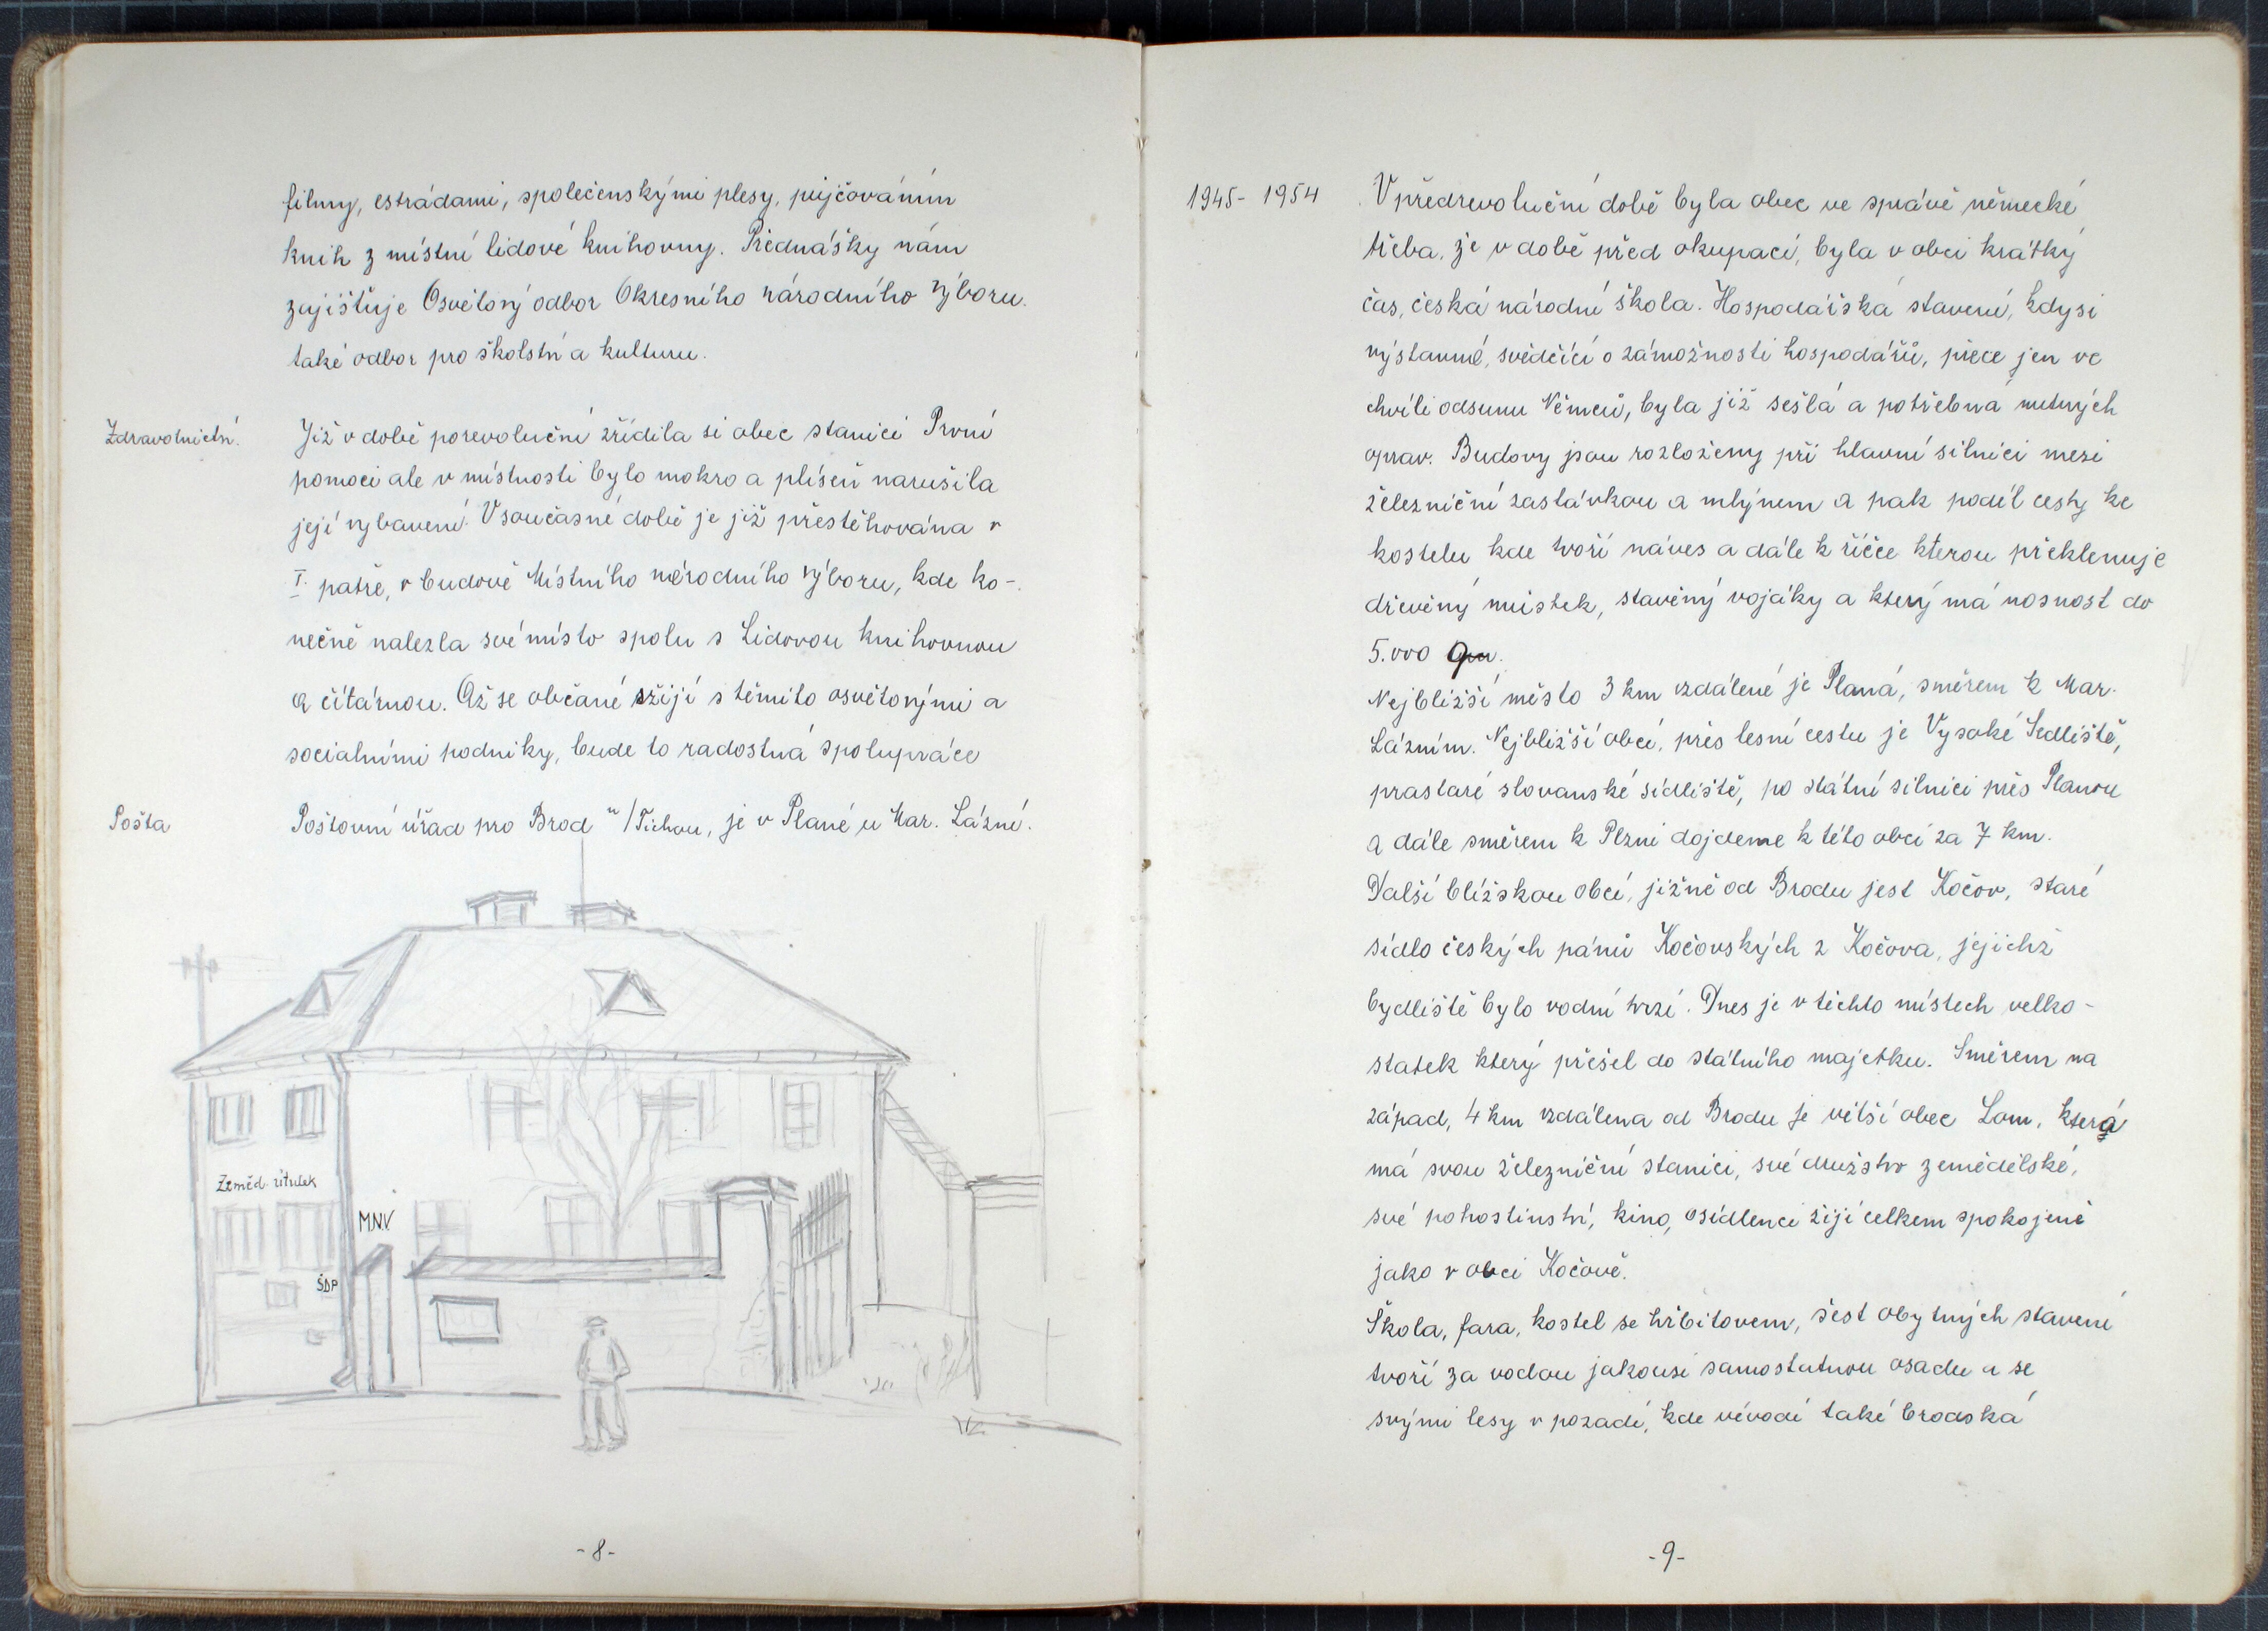 filmy, estrádami, společenskými plesy, půjčováním
knih z místní lidové knihovny. Přednášky nám
zajišťuje Osvětový odbor Okresního národního výboru.
také odbor pro školství a kulturu.
Zdravotnictví.
Již v době porevoluční zřídila si obec stanici První
pomoci ale v místnosti bylo mokro a plíseň narušila
její vybavení. V současné době je již přestěhována v
I. patře, v budově Místního národního výboru, kde ko-
nečně nalezla své místo spolu s Lidovou knihovnou
a čítárnou. Až se občané sžijí s těmito osvětovými a
socialními podniky, bude to radostná spolupráce
Pošta
Poštovní úřad pro Brod n/Tichou, je v Plané u Mar. Lázní.
Zeměd. útulek
M.N.V.
ŠDP
-8-
1945-1954
V předrevoluční době byla obec ve správě německé
třeba, že v době před okupací, byla v obci krátký
čas, česká národní škola. Hospodářská stavení, kdysi
výstavné, svědčící o zámožnosti hospodářů, přece jen ve
chvíli odsunu Němců, byla již sešlá a potřebná nutných
oprav. Budovy jsou rozloženy při hlavní silnici mezi
železniční zastávkou a mlýnem a pak podél cesty ke
kostelu kde tvoří náves a dále k říčce kterou překlenuje
dřevěný můstek, stavěný vojáky a který má nosnost do
5.000
Nejbližší město 3 km vzdálené je Planá, směrem k Mar.
Lázním. Nejbližší obcí, přes lesní cestu je Vysoké Sedliště,
prastaré slovanské sídliště, po státní silnici přes Planou
a dále směrem k Plzni dojdeme k této obci za 7 km.
Další blížskou obcí, jižně od Brodu jest Kočov, staré
sídlo českých pánů Kočovských z Kočova, jejichž
bydliště bylo vodní tvrzí. Dnes je v těchto místech velko-
statek který přešel do státního majetku. Směrem na
západ, 4 km vzdálena od Brodu je větší obec Lom, která
má svou železniční stanici, své družstvo zemědělské,
své pohostinství, kino, osídlenci žijí celkem spokojeně
jako v obci Kočově.
Škola, fara, kostel se hřbitovem, šest obytných stavení
tvoří za vodou jakousi samostatnou osadu a se
svými lesy v pozadí, kde vévodí také brodská
-9-